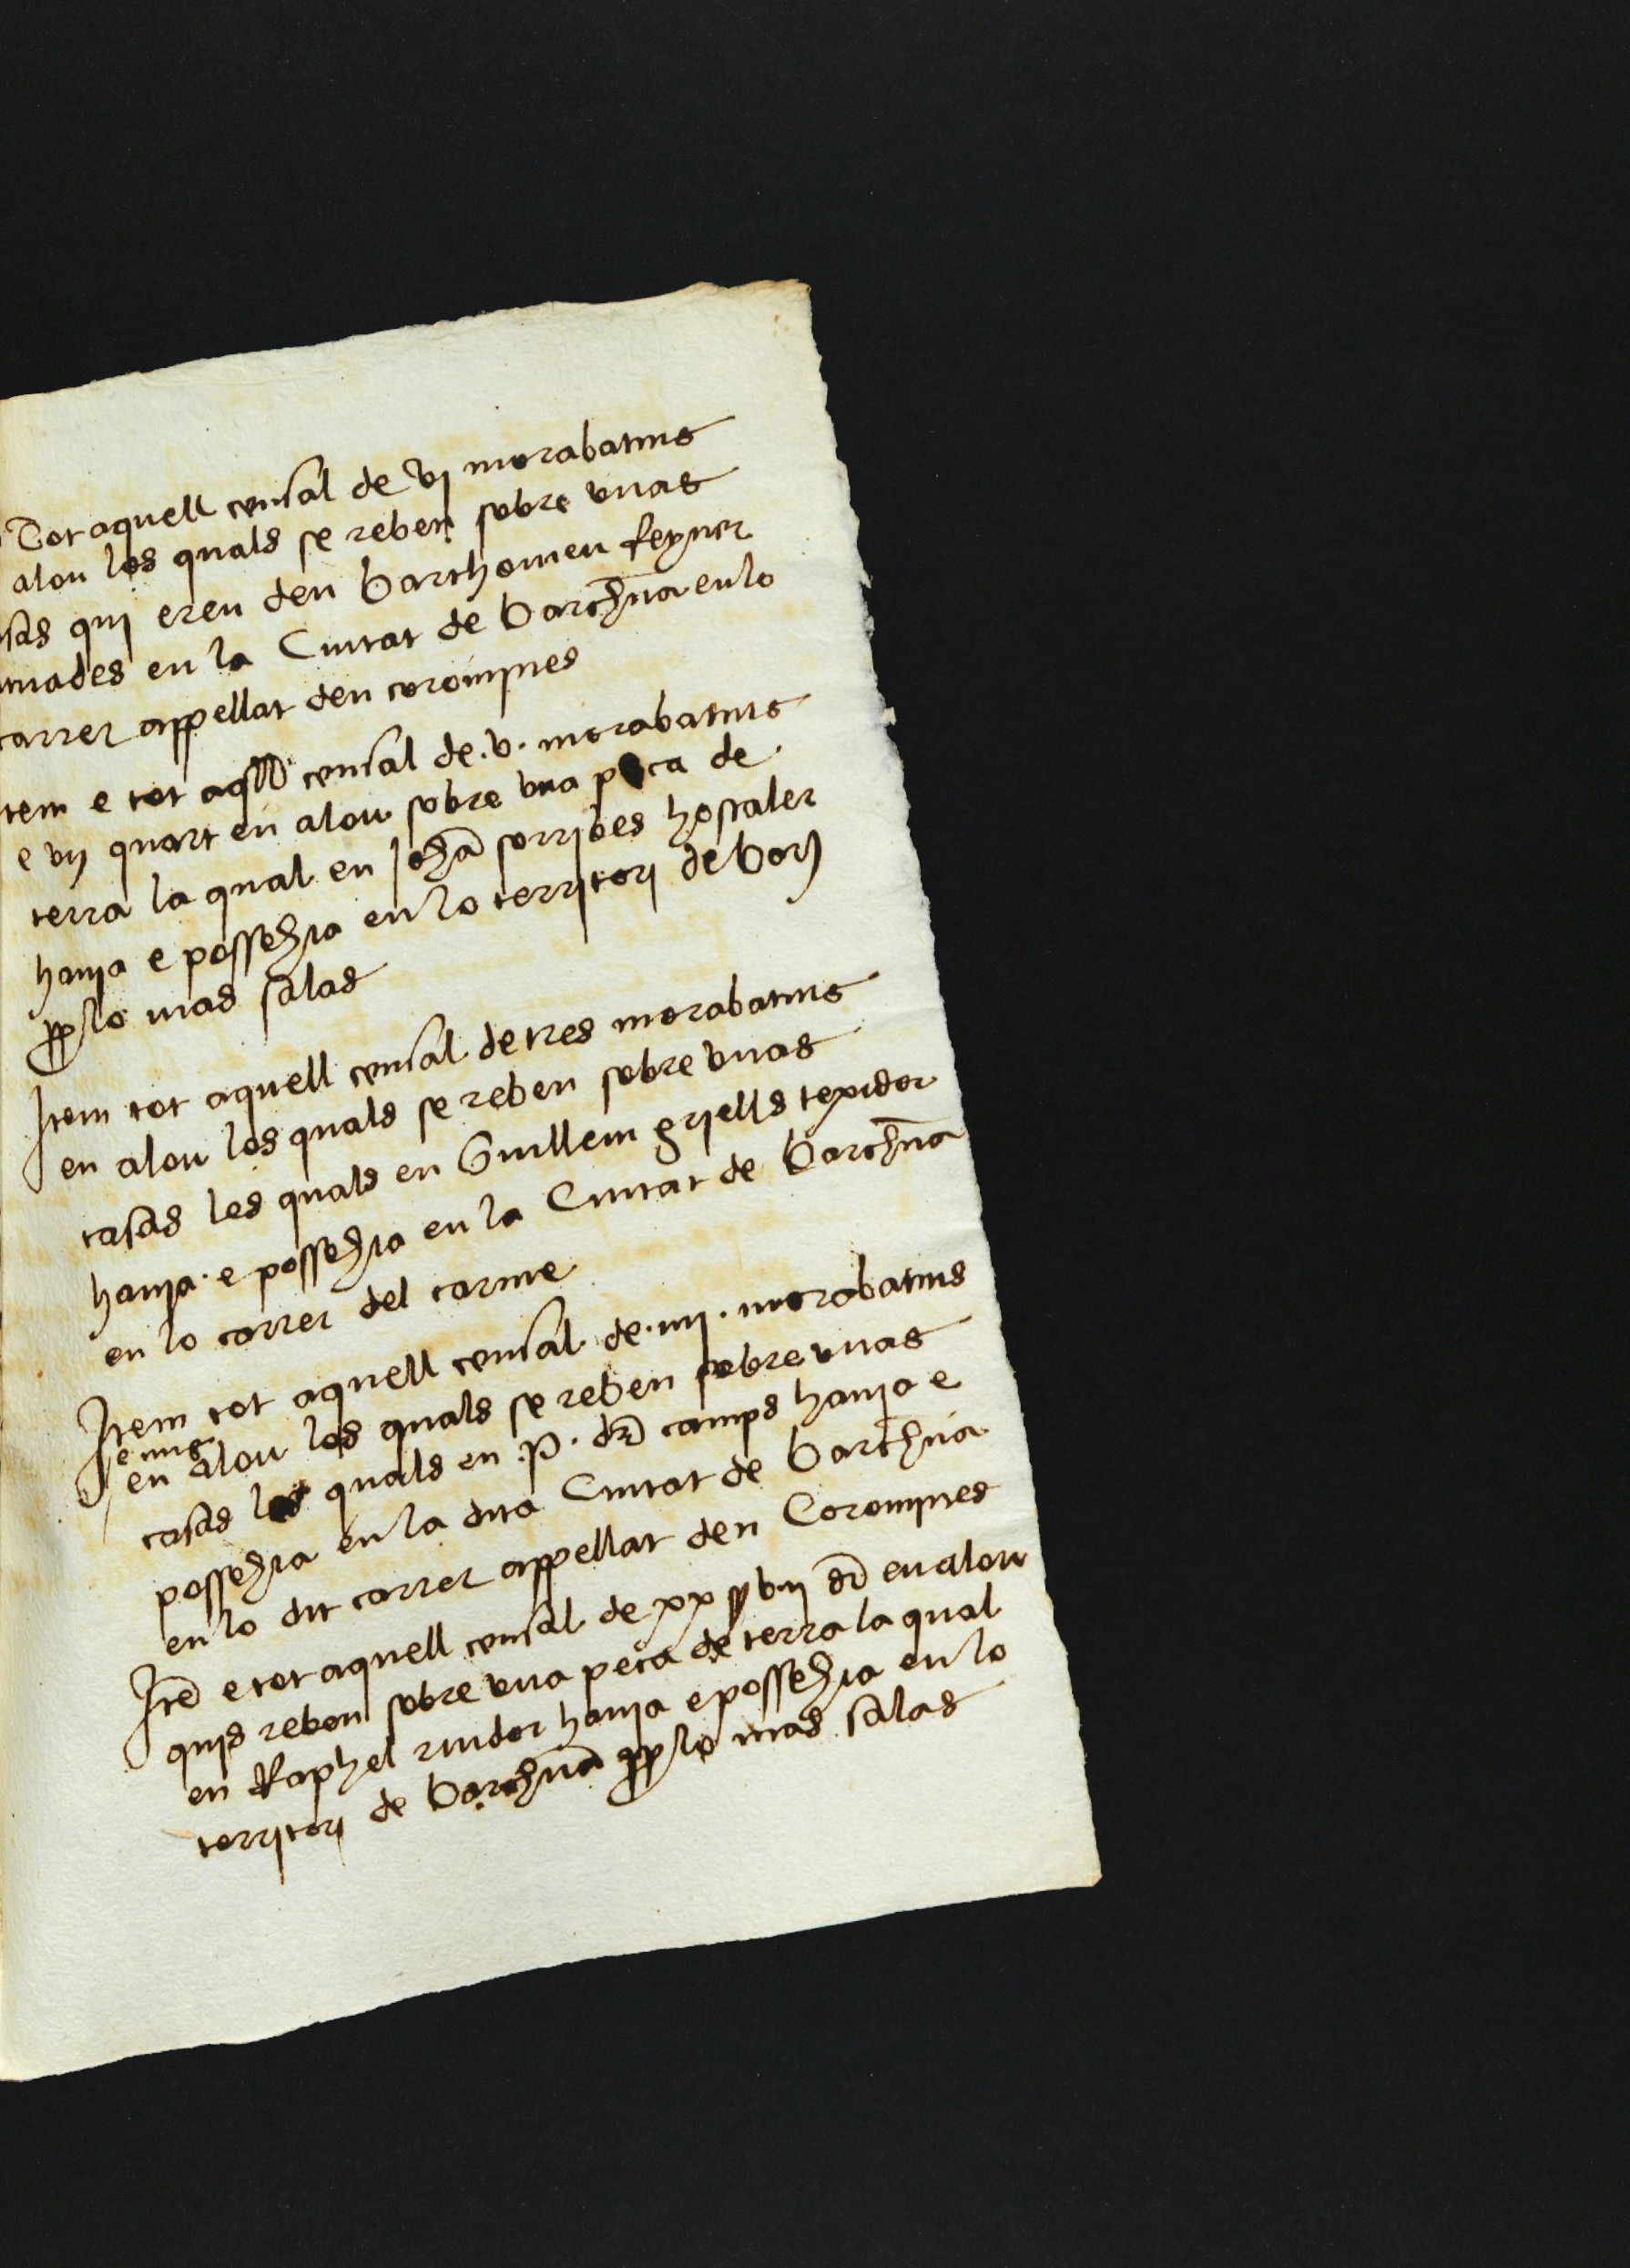 Tot aquell censal de vj morabatins
alou los quals se reben sobre vnas
sas quj eren den barthomeu feyner
tuades en la Ciutat de barchna en lo
carrer appellat den coromines
tem e tot aqll censal de .v. morabatins
e vij quart en alou sobre vna peca de
terra la qual en Joha sorribes hostaler
hauja e possehia en lo territori de bar
prop lo mas salas
Item tot aquell censal de tres morabatins
en alou los quals se reben sobre vnas
casas les quals en Guillem griells texidor
hauja e possehia en la Ciutat de barchna
en lo carrer del carme
Item tot aquell censal de .iiij. morabatins
e mig
en alou los quals se reben sobre vnas
casas les quals en .P. des camps hauja e
possehia en la dita Ciutat de barchna
en lo dit carrer appellat den Coromines
Ite e tot aquell censal de xx vij en alou
quis reben sobre vna peca de terra la qual
en Raphel riudor hauja e possehia en lo
territori de barchna prop lo mas salas